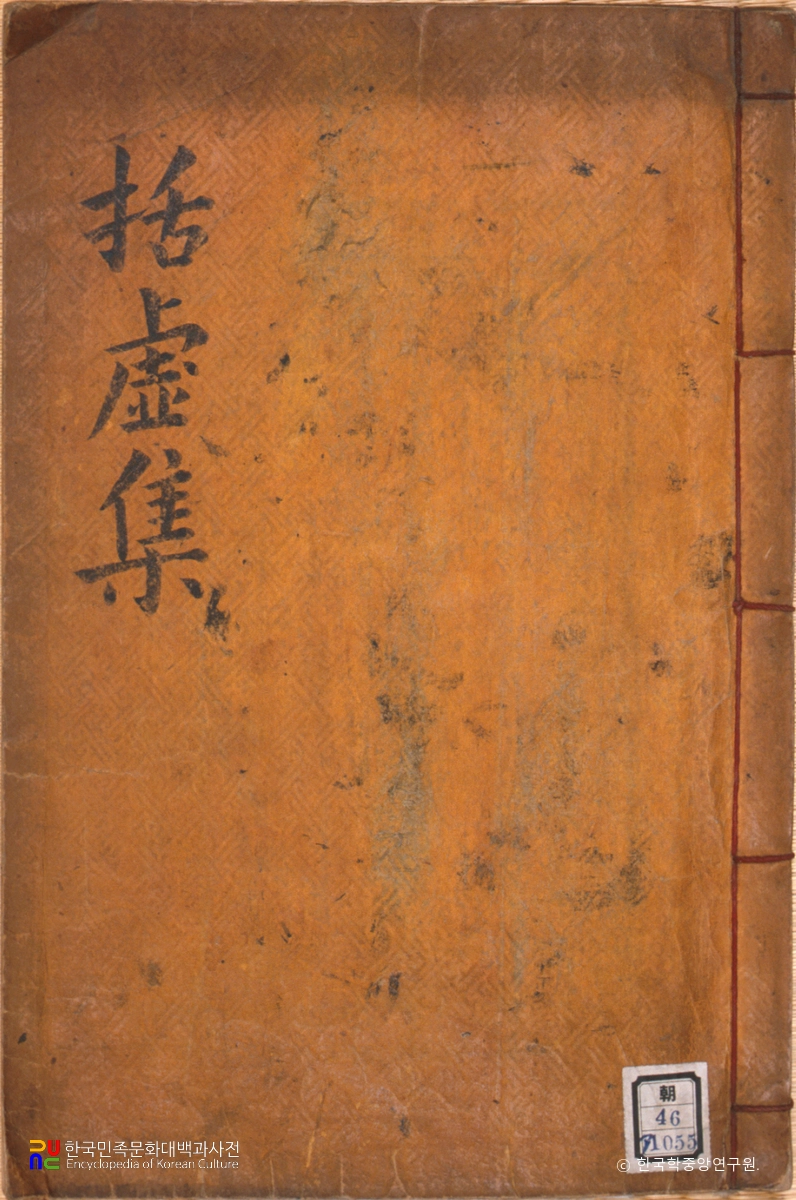 括虛集
朝
46
71055
한국민족문화대백과사전
Encyclopedia of Korean Culture
© 한국학중앙연구원.